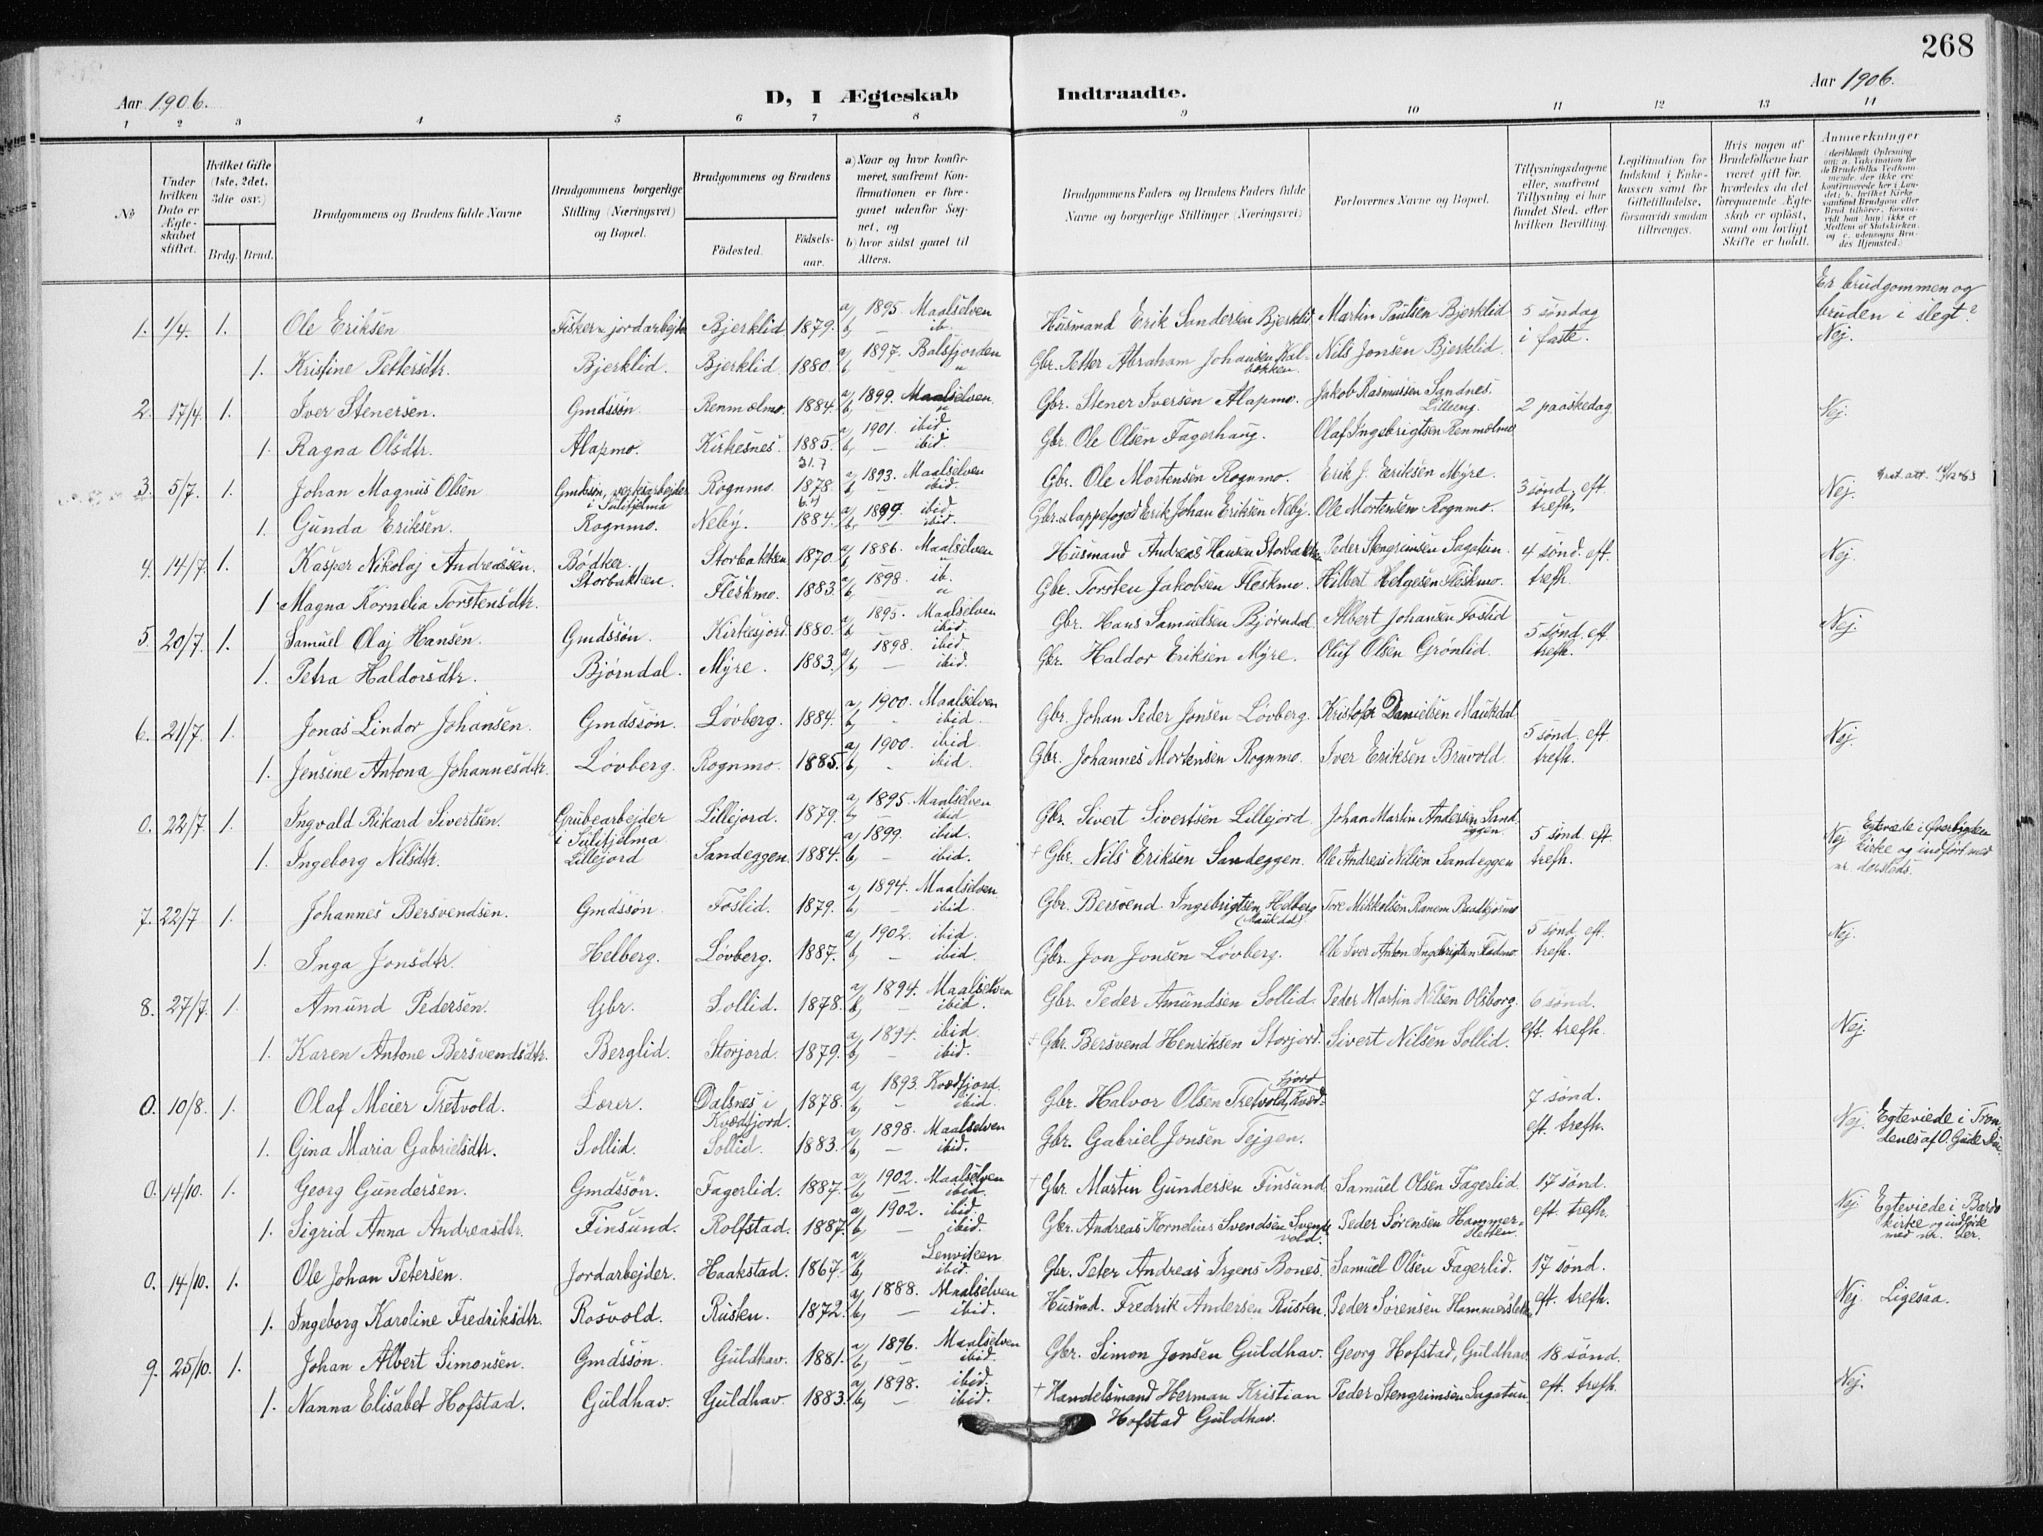 268
Aar 1906.
D, I Ægteskab
Indtraadte.
Aar 1906.
1 2 3 4 5 6 7 8 9 10 11 12 13 14
No
Under hvilken Dato er Ægteskabet stiftet.
Hvilket Gifte (1ste, 2det, 3die osv.)
Brdg. Brud.
Brudgommens og Brudens fulde Navne
Brudgommens borgerlige Stilling (Næringsvei) og Bopæl.
Brudgommens og Brudens
Fødested.
Fødselsaar.
a) Naar og hvor konfirmeret, saafremt Konfirmationen er foregaaet udenfor Sognet, og
b) hvor sidst gaaet til Alters.
Brudgommens Faders og Brudens Faders fulde Navne og borgerlige Stillinger (Næringsvei)
Forlovernes Navne og Bopæl.
Tillysningsdagene eller, saafremt Tillysning ei har fundet Sted, efter hvilken Bevilling.
Legitimation for Indskud i Enkekassen samt for Giftetilladelse, forsaavidt saadan tiltrænges.
Hvis nogen af Brudefolkene har været gift før, hvorledes da det foregaaende Ægteskab er opløst, samt om lovligt Skifte er holdt.
Anmerkninger
(deriblandt Oplysning om: a. Vakcination for de Brudefolks Vedkommende, der ikke ere konfirmerede her i Landet; b. hvilket Kirkesamfund Brudgom eller Brud tilhører, forsaavidt han (hun) ikke er Medlem af Statskirken, og c. udensogns Brudes Hjemsted.)
Er brudgommen og bruden i slegt?
1. 1/4. 1. Ole Eriksen Fisker & jordarbejder Bjerklid 1879. a) 1895. Maalselven b) — ib. Husmand Erik Sandersen Bjerklid Martin Paulsen Bjerklid 5 søndag i faste. Nej.
1. Kristine Pettersdtr. Bjerklid. Bjerklid. 1880. a) 1897. Balsfjorden b) — " Gbr. Petter Abraham Johansen Kalbækken. Nils Jonsen Bjerklid.
2. 17/4. 1. Iver Stenersen. Gmdssøn Renmælmo. 1884. a) 1899. Maalselven b) — " Gbr. Stener Iversen Alapmo. Jakob Rasmussen Sandnes. Lilleeng. 2 paaskedag Nej.
1. Ragna Olsdtr. Alapmo. Kirkesnes. 1885. a) 1901. ibid. b) — ibid. Gbr. Ole Olsen Fagerhaug. Olaf Ingebrigtsen Renmælmo
3. 5/7. 1. Johan Magnus Olsen Gmdssøn, verksarbejder i Sulitjelma Rognmo. 31.7 1878. a) 1893. Maalselven b) — ibid. Gbr. Ole Mortensen Rognmo. Erik J. Eriksen Myre. 3 sønd. eft. trefh. Nej.
1. Gunda Eriksen. Rognmo. Neby. 1884. a) 1899. ibid. b) ibid. Gbr. & lappefoged Erik Johan Eriksen Neby. Ole Mortensen Rognmo.
4. 14/7. 1. Kasper Nikolaj Andreassen. Bødker Storbakken. Storbakken 1870. a) 1886. Maalselven b) — " Husmand Andreas Hansen Storbakken Peder Stengrimsen Sagatun. 4 sønd. eft. trefh. Nej.
1. Magna Kornelia Torstensdtr. Fleskmo. 1883. a) 1898. ib. b) " Gbr. Torsten Jakobsen Fleskmo. Hilbert Helgesen Fleskmo.
5. 20/7. 1. Samuel Olaj Hansen. Gmdssøn. Kirkesjord. 1880. a) 1895. Maalselven b) ibid. Gbr. Hans Samuelsen Bjørndal Albert Johansen Foslid 5 sønd. eft. trefh. Nej.
1. Petra Haldorsdtr. Bjørndal. Myre. 1883. a) 1898. ibid. b) — ibid. Gbr. Haldor Eriksen Myre. Oluf Olsen Grønlid.
6. 21/7. 1. Jonas Lindor Johansen. Gmdssøn. Løvberg. 1884. a) 1900. Maalselven b) ibid. Gbr. Johan Peder Jonsen Løvberg. Kristofer Danielsen Maukdal. 5 sønd. eft. trefh. Nej.
1. Jensine Antona Johannesdtr. Løvberg. Rognmo. 1885. a) 1900. ibid. b) - ibid. Gbr. Johannes Mortensen Rognmo. Iver Eriksen Bruvold.
0. 22/7. 1. Ingvald Rikard Sivertsen. Grubearbejder i Sulitjelma Lillejord. 1879. a) 1895. Maalselven b) — ibid. Gbr. Sivert Sivertsen Lillejord. Johan Martin Andersen Sandeggen. 5 sønd. eft. trefh. Nej Egteviede i Øverbygden kirke og indført med nr. dersteds.
1. Ingeborg Nilsdtr. Lillejord Sandeggen. 1884. a) 1899. ibid. b) — ibid. † Gbr. Nils Eriksen Sandeggen. Ole Andreas Nilsen Sandeggen
7. 22/7 1. Johannes Bersvendsen. Gmdssøn. Foslid. 1879. a) 1894. Maalselven b) — ibid. Gbr. Bersvend Ingebrigtsen Helberg (Maukdal) Tore Mikkelsen Ranem 5 sønd. eft. trefh. Nej.
1. Inga Jonsdtr. Helberg. Løvberg. 1887. a) 1902. ibid. b) — ibid. Gbr. Jon Jonsen Løvberg. Ole Iver Anton Ingebrigtsen
8. 27/7. 1. Amund Pedersen. Gbr. Sollid. 1878. a) 1894. Maalselven b) — ibid. Gbr. Peder Amundsen Sollid. Peder Martin Nilsen Olsborg. 6 sønd. eft. trefh. Nej
1. Karen Antone Bersvendsdtr. Berglid. Storjord. 1879. a) 1894. ibid. b) — ibid. † Gbr. Bersvend Henriksen Storjord. Sivert Nilsen Sollid.
0. 10/8. 1. Olaf Meier Tretvold. Lærer. Dalsnes i Kvædfjord. 1878. a) 1893. Kvædfjord. b) — ibid. Gbr. Halvor Olsen Tretvold, Kvædfjord 7 sønd. eft. trefh. Nej. Egteviede i Trondenes af O. Gude
1. Gina Maria Gabrielsdtr. Sollid. Sollid. 1883. a) 1898. Maalselven b) — ibid. Gbr. Gabriel Jonsen Tejgen.
0. 14/10. 1. Georg Gundersen. Gmdssøn. Fagerlid. 1887. a) 1902. Maalselven b) — ibid. † Gbr. Martin Gundersen Finsund Samuel Olsen Fagerlid. 17 sønd. eft. trefh. Nej Egteviede i Bardo kirke og indførte med nr. der.
1. Sigrid Anna Andreasdtr. Finsund. Rolfstad. 1887. a) 1902. ibid. b) — ibid. Gbr. Andreas Kornelius Svendsen Svendsvold. Peder Sørensen Hammersletten.
0. 14/10. 1. Ole Johan Petersen. Jordarbejder. Haakstad. 1867. a) Lenviken b) ibid. Gbr. Peter Andreas Irgens Bones. Samuel Olsen Fagerlid. 17 sønd. eft. trefh. Nej Ligesaa.
1. Ingeborg Karoline Fredriksdtr. Rosvold. Rusten. 1872. a) 1888. Maalselven b) — ibid. Husmd. Fredrik Andersen Rusten. Peder Sørensen Hammersletten
9. 25/10. 1. Johan Albert Simonsen. Gmdssøn. Guldhav. 1881. a) 1896. Maalselven b) — ibid. Gbr. Simon Jonsen Guldhav. Georg Hofstad, Guldhav. 18 sønd. eft. trefh. Nej.
1. Nanna Elisabet Hofstad. Guldhav. Guldhav. 1883. a) 1898. ibid. b) — ibid. † Handelsmand Herman Kristian Hofstad Guldhav. Peder Stengrimsen Sagatun